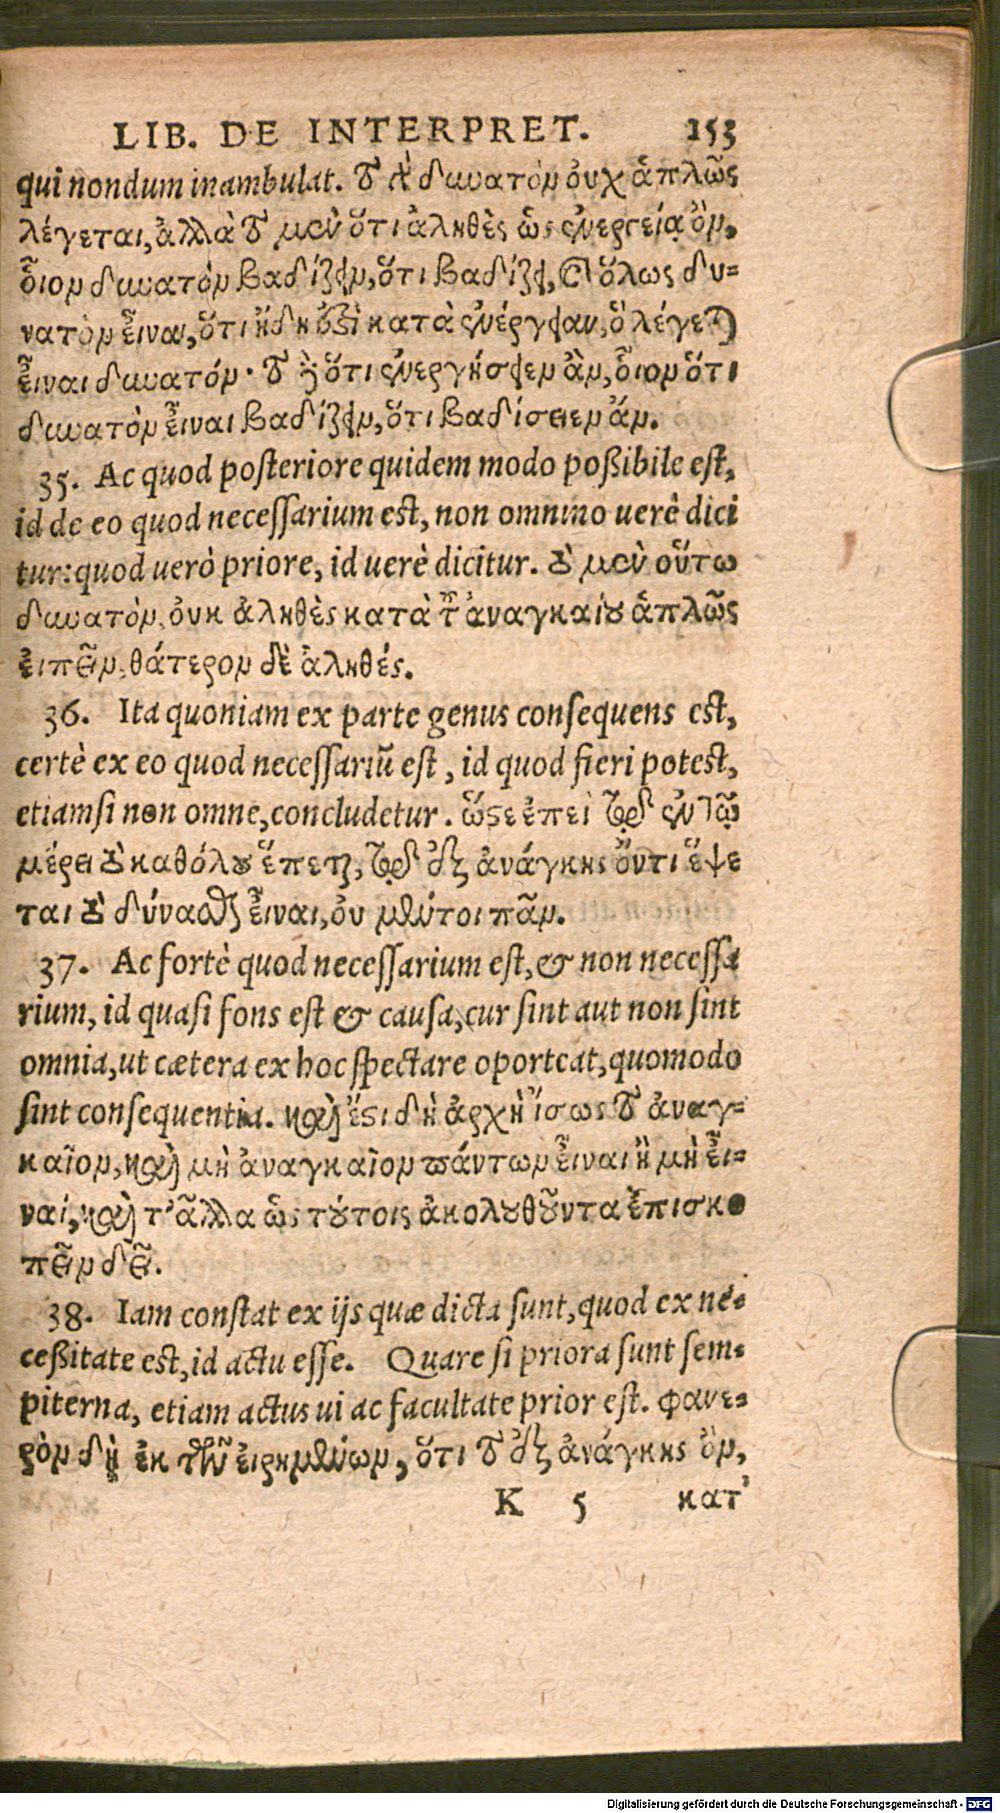 LIB. DE INTERPRET. 153
qui nondum inambulat. τὸ δὲ δυνατὸν οὐχ ἁπλῶς
λέγεται, ἀλλὰ τὸ μὲν ὅτι ἀληθὲς ὡς ἐνεργείᾳ ὂν,
οἷον δυνατὸν βαδίζειν, ὅτι βαδίζει, καὶ ὅλως δυ-
νατὸν εἶναι, ὅτι ἤδη ἐστὶ κατὰ ἐνέργειαν, ὃ λέγεται
εἶναι δυνατόν· τὸ δὲ ὅτι ἐνεργήσειεν ἂν, οἷον ὅτι
δυνατὸν εἶναι βαδίζειν, ὅτι βαδίσειεν ἄν.
35. Ac quod posteriore quidem modo poßibile est,
id de eo quod necessarium est, non omnino uerê dici
tur: quod uerò priore, id uerè dicitur. τὸ μὲν οὕτω
δυνατὸν, οὐκ ἀληθὲς κατὰ τοῦ ἀναγκαίου ἁπλῶς
εἰπεῖν, θάτερον δὲ ἀληθές.
36. Ita quoniam ex parte genus consequens est,
certè ex eo quod necessariũ est, id quod fieri potest,
etiamsi non omne, concludetur. ὥστε ἐπεὶ τῷ ἐν τῷ
μέρει τὸ καθόλου ἕπεται, τῷ ἐξ ἀνάγκης ὄντι ἕψε
ται τὸ δύνασθαι εἶναι, οὐ μέντοι πᾶν.
37. Ac fortè quod necessarium est, & non necessa
rium, id quasi fons est & causa, cur sint aut non sint
omnia, ut cætera ex hoc spectare oporteat, quomodo
sint consequentia. καὶ ἔστι δὴ ἀρχὴ ἴσως τὸ ἀναγ-
καῖον, καὶ μὴ ἀναγκαῖον πάντων εἶναι ἢ μὴ εἶ-
ναί, καὶ τ' ἄλλα ὡς τούτοις ἀκολουθοῦντα ἐπισκο
πεῖν δεῖ.
38. Iam constat ex ijs quæ dicta sunt, quod ex ne-
ceßitate est, id actu esse. Quare si priora sunt sem-
piterna, etiam actus ui ac facultate prior est. φανε-
ρὸν δὴ ἐκ τῶν εἰρημένων, ὅτι τὸ ἐξ ἀνάγκης ὂν,
K 5 κατ'
Digitalisierung gefördert durch die Deutsche Forschungsgemeinschaft - DFG